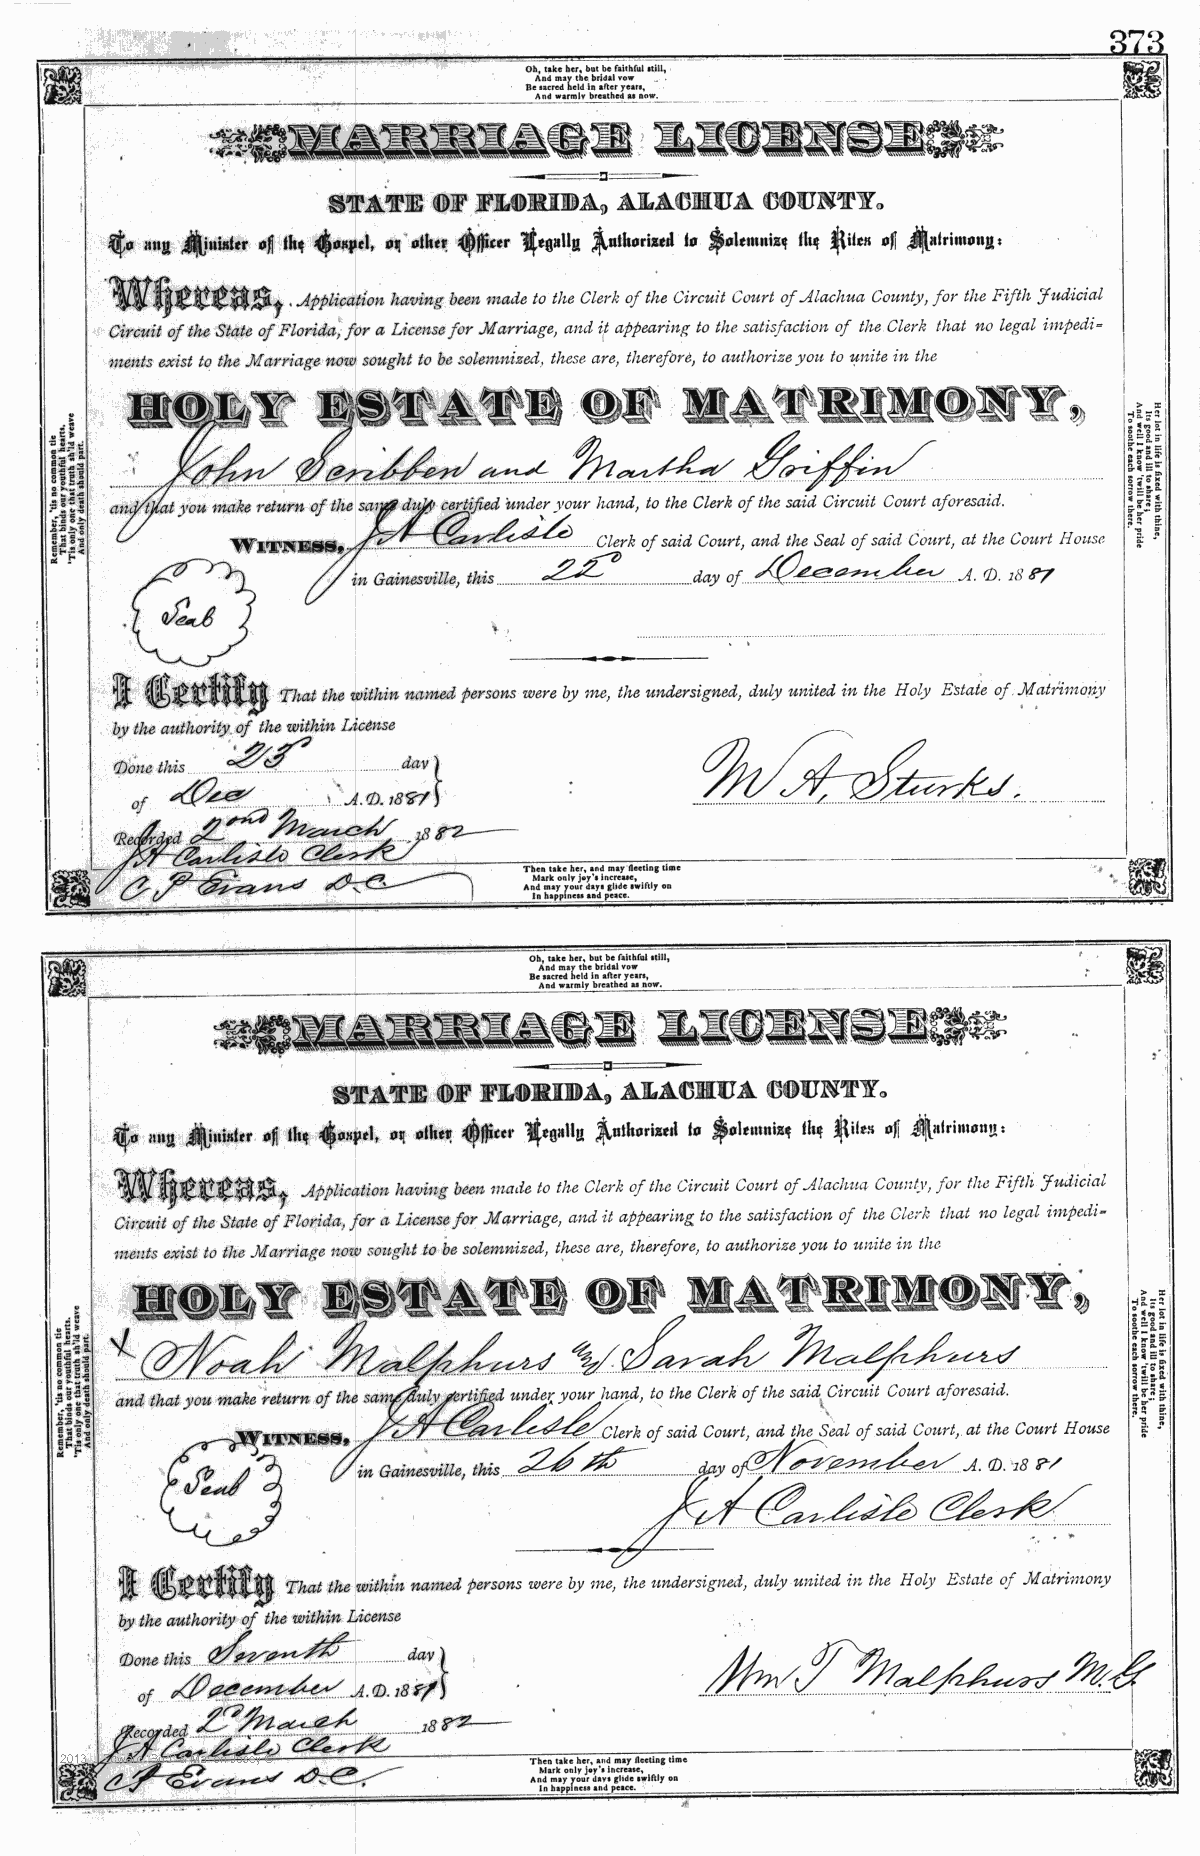 373
Oh, take her, but be faithful still,
And may the bridal vow
Be sacred held in after years,
And warmly breathed as now.
MARRIAGE LICENSE
STATE OF FLORIDA, ALACHUA COUNTY.
To any Minister of the Gospel, or other Officer Legally Authorized to Solemnize the Rites of Matrimony:
Whereas, Application having been made to the Clerk of the Circuit Court of Alachua County, for the Fifth Judicial
Circuit of the State of Florida, for a License for Marriage, and it appearing to the satisfaction of the Clerk that no legal impedi-
ments exist to the Marriage now sought to be solemnized, these are, therefore, to authorize you to unite in the
HOLY ESTATE OF MATRIMONY,
John Scribben and Martha Griffin
and that you make return of the same duly certified under your hand, to the Clerk of the said Circuit Court aforesaid.
WITNESS, J A Carlisle Clerk of said Court, and the Seal of said Court, at the Court House
in Gainesville, this 22d day of December A. D. 1881
Seal
I Certify That the within named persons were by me, the undersigned, duly united in the Holy Estate of Matrimony
by the authority of the within License
Done this 25 day
of Dec A. D. 1881
M A, Sturks.
Recorded 2nd March 1882
J A Carlisle Clerk
C P Evans D.C.
Remember, 'tis no common tie
That binds our youthful hearts,
'Tis only one that truth sh'ld weave
And only death should part.
Her lot in life is fixed with thine,
Its good and ill to share;
And well I know 'twill be her pride
To soothe each sorrow there.
Then take her, and may fleeting time
Mark only joy's increase,
And may your days glide swiftly on
In happiness and peace.
Oh, take her, but be faithful still,
And may the bridal vow
Be sacred held in after years,
And warmly breathed as now.
MARRIAGE LICENSE
STATE OF FLORIDA, ALACHUA COUNTY.
To any Minister of the Gospel, or other Officer Legally Authorized to Solemnize the Rites of Matrimony:
Whereas, Application having been made to the Clerk of the Circuit Court of Alachua County, for the Fifth Judicial
Circuit of the State of Florida, for a License for Marriage, and it appearing to the satisfaction of the Clerk that no legal impedi-
ments exist to the Marriage now sought to be solemnized, these are, therefore, to authorize you to unite in the
HOLY ESTATE OF MATRIMONY,
X Noah Malphurs and Sarah Malphurs
and that you make return of the same duly certified under your hand, to the Clerk of the said Circuit Court aforesaid.
WITNESS, J A Carlisle Clerk of said Court, and the Seal of said Court, at the Court House
in Gainesville, this 26th day of November A. D. 1881
Seal
J A Carlisle Clerk
I Certify That the within named persons were by me, the undersigned, duly united in the Holy Estate of Matrimony
by the authority of the within License
Done this Seventh day
of December A. D. 1881
Wm T Malphurs M.G.
Recorded 2d March 1882
J A Carlisle Clerk
C P Evans D.C.
2013
Remember, 'tis no common tie
That binds our youthful hearts,
'Tis only one that truth sh'ld weave
And only death should part.
Her lot in life is fixed with thine,
Its good and ill to share;
And well I know 'twill be her pride
To soothe each sorrow there.
Then take her, and may fleeting time
Mark only joy's increase,
And may your days glide swiftly on
In happiness and peace.